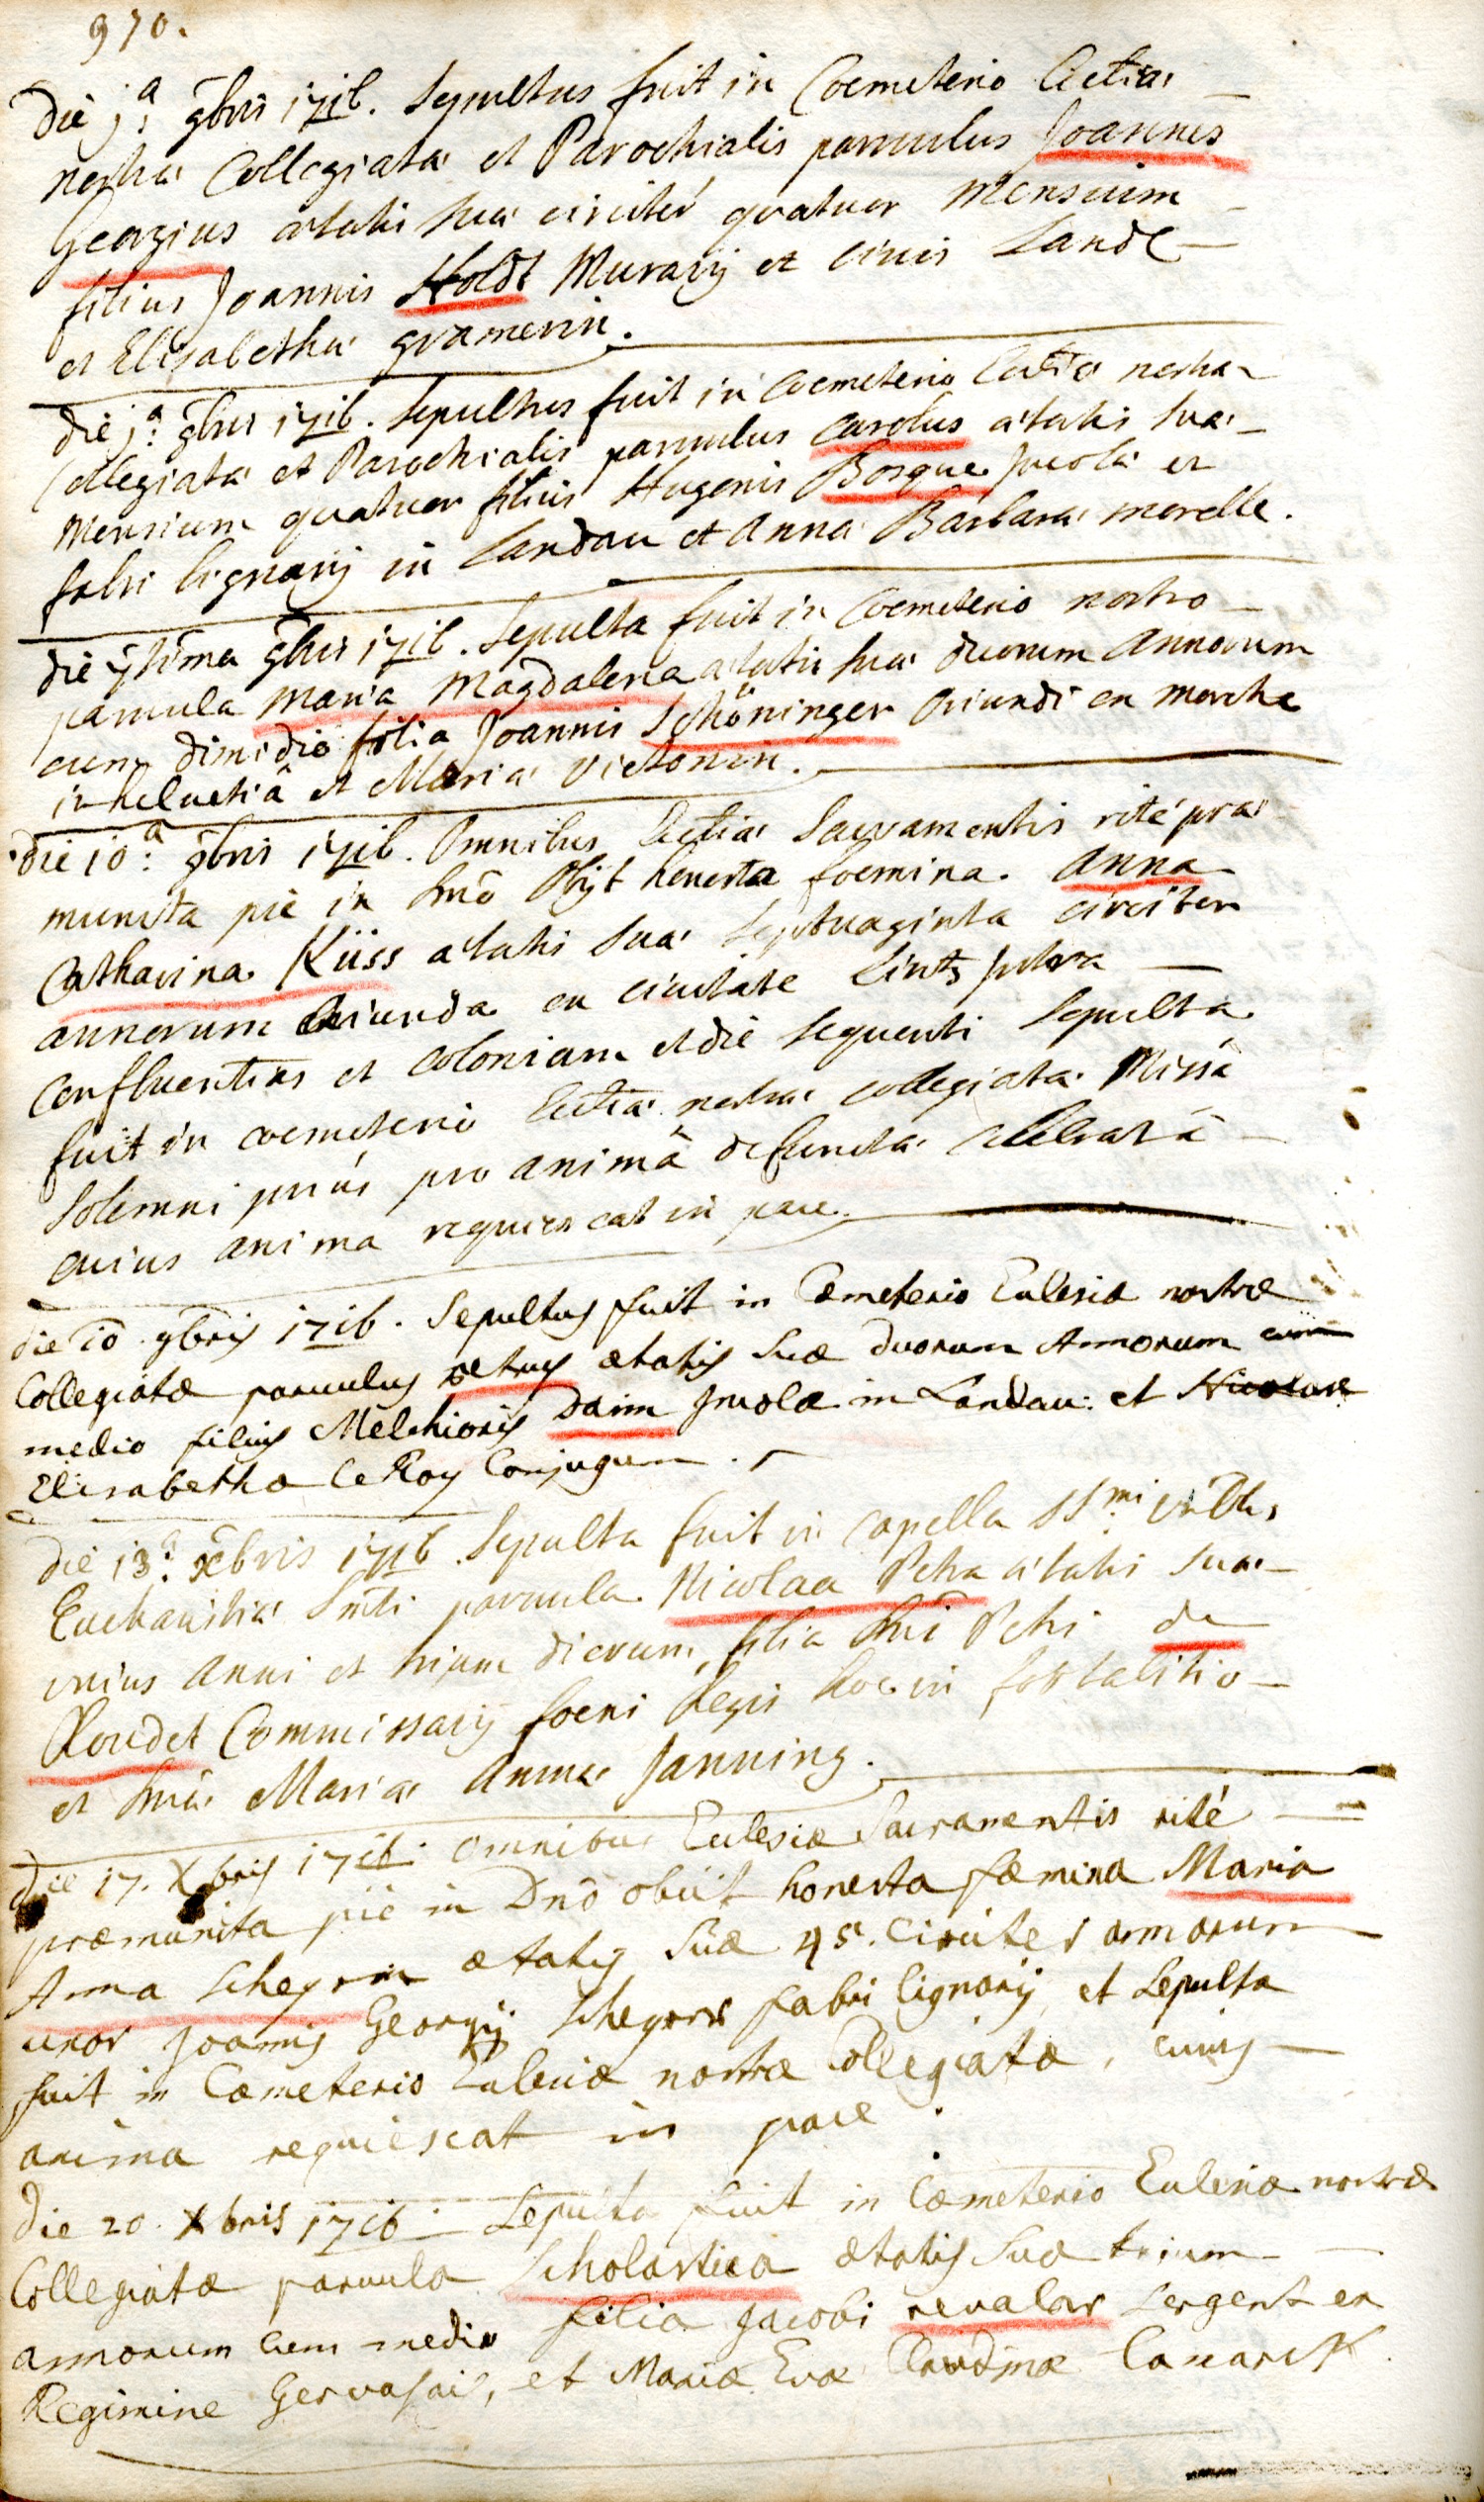 970.
Die j.a 9bris 1716. Sepultus fuit in Coemeterio Ecclia
nostra Collegiata et Parochialis parvulus Joannes
Georgius ætatis sua circiter quatuor Mensium
filius Joannis Holdt Murarij et civis Land.
et Elisabetha gramerin.
Die j.a 9bris 1716. Sepultus fuit in Coemeterio Ecclia nostra
Collegiata et Parochialis parvulus Carolus ætatis sua
Mensium quatuor filius Hugonis Bosque Incola et
fabri lignarij in Landau et Anna Barbara morelle.
Die 9bris 1716. Sepulta fuit in Coemeterio nostro
parvula Maria Magdalena ætatis sua duorum Annorum
cum dimidio filia Joannis Schöninger Oriundi ex Marcha
in helvetiâ et Maria Victorin.
Die 10.a 9bris 1716. Omnibus Ecclia Sacramentis rité præ
munita pie in Dno Obijt honesta foemina Anna
Catharina Küss ætatis sua septuaginta circiter
annorum Oriunda ex civitate Lintz
Confluentias et Coloniam et die sequenti Sepulta
fuit in coemeterio Ecclia nostra collegiata Missâ
solemni priús pro animâ defuncta celebratâ
cuius anima requiescat in pace.
die 10 9bris 1716. Sepultus fuit in Cæmeterio Eclesiæ nostræ
Collegiatæ parvulus petrus ætatis suæ duorum Annorum cum
medio filius Melchioris Daim Incolæ in Landau: et
Elisabethæ le Roy Conjugum.
Die 13.a xbris 1716 Sepulta fuit in capella SSmi
Eucharistia Smti parvula Nicolaa Petra ætatis sua
unius Anni et trium dierum, filia Dni Petri de
Roudet Commissarij foeni Regis hoc in fortalitio
et Dnæ Maria Anna Janning.
Die 17. Xbris 1716. omnibus Eclesiæ Sacramentis rité
præmunita pié in Dno obiit honesta fæmina Maria
Anna Scheyrin ætatis suæ 45. Circiter annorum
uxor Joannis Georgij Scheyrer fabri lignarij, et Sepulta
fuit in Cæmeterio Eclesiæ nostræ Collegiatæ, cuius
anima requiescat in pace.
Die 20. Xbris 1716. Sepulta fuit in Cæmeterio Eclesiæ nostræ
Collegiatæ parvula Scholastica ætatis suæ trium
annorum cum medio filia Jacobi revalar Sergent ex
Regimine Gervasais, et Mariæ Evæ Claudinæ